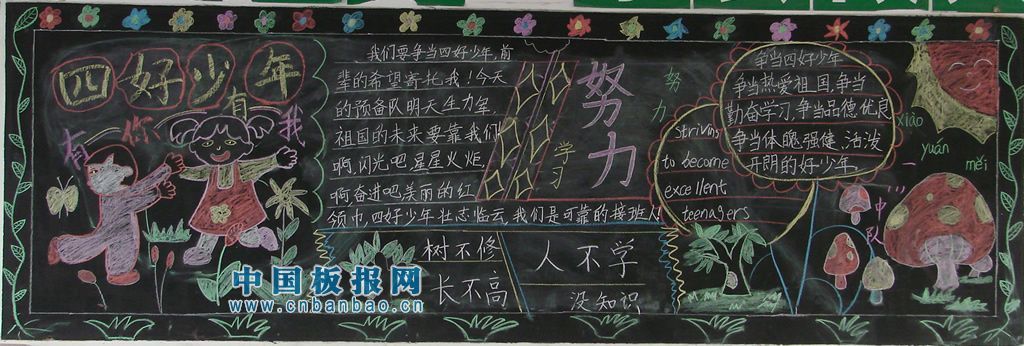 四好少年
有你有我
我们要争当四好少年,前
辈的希望寄托我!今天
的预备队明天生力军,
祖国的未来要靠我们
啊,闪光吧星星火炬,
啊奋进吧美丽的红
领巾,四好少年壮志临云,我们是可靠的接班人
学习
努力
努力
striving
to become
excellent
teenagers
争当四好少年
争当热爱祖国,争当
勤奋学习,争当品德优良
争当体魄强健、活泼
开朗的好少年。
xiǎo
yuán
měi
一中队
树不修
长不高
人不学
没知识
中国板报网
www.cnbanbao.cn